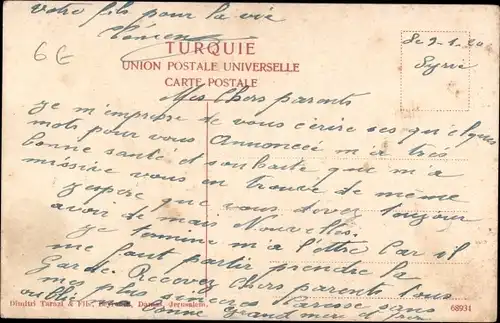 votre fils pour la vie
6E
TURQUIE
UNION POSTALE UNIVERSELLE
CARTE POSTALE
Le 9-1-20
Syrie
Mes Chers parents
je m'empresse de vous écrire ses quelques
mots pour vous Annoncée m'a très
bonne santé et souhaite que m'a
missive vous en trouve de même
j'espère que vous devez toujour
avoir de mais Nouvelles.
je termine m'a lettre Car il
me faut partir prendre la
Garde. Recevez Chers parents tous
mes plus Caresse sans
Dimitri Tarazi & Fils, Damas, Jerusalem.
68931
oublier bonne grand mère et